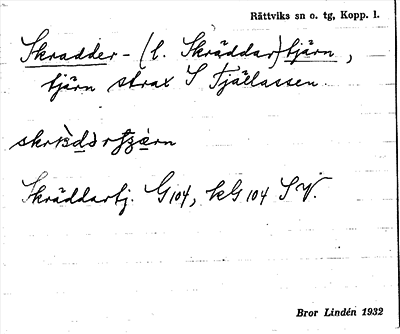 Rättviks sn o. tg, Kopp. l.
Skradder- (l. Skräddar)tjärn,
tjärn strax S Fjällassen.
Skräddartj. G104, kG104 SV.
Bror Lindén 1932